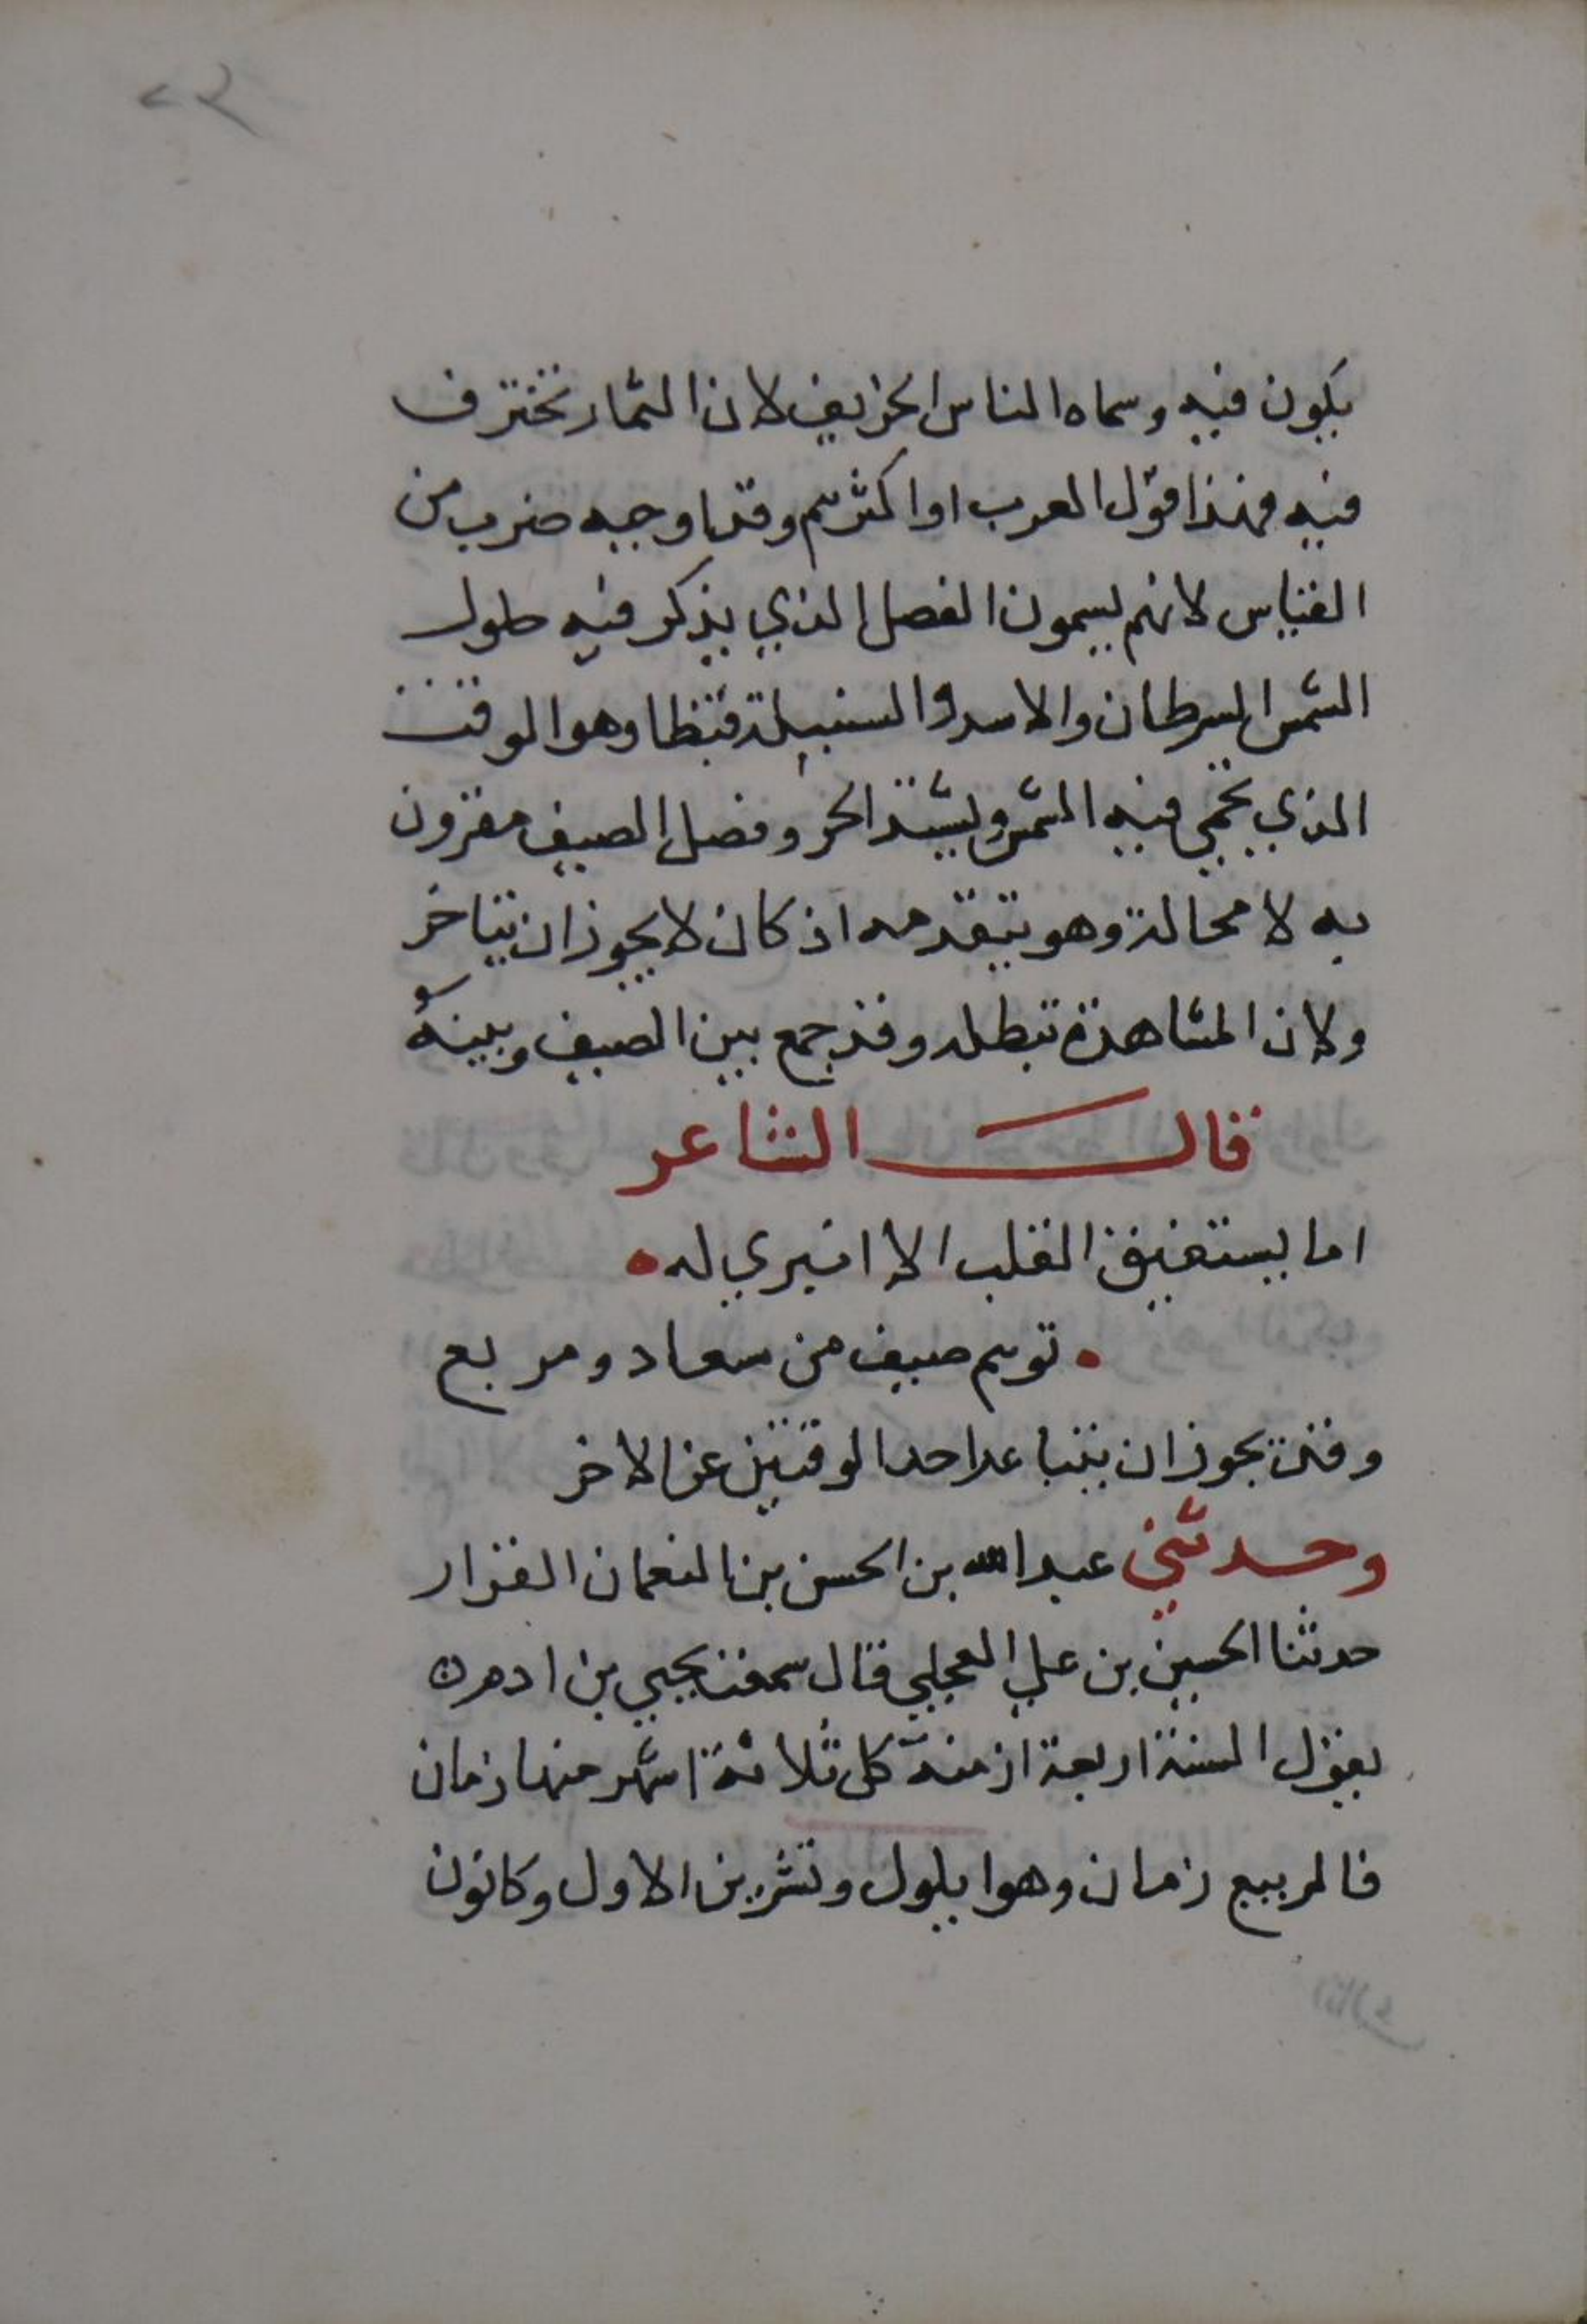 يكون فيه وسماه الناس الخريف لان الثمار تخترف
فيه فهذا قول العرب او اكثرهم وقد اوجبه ضرب من
القياس لانهم يسمون الفصل الذي يذكر فيه حلول
الشمس السرطان والاسد والسنبلة قيظا وهو الوقت
الذي تحمي فيه الشمس ويشتد الحر وفصل الصيف مقرون
به لا محالة وهو يتقدمه اذ كان لا يجوز ان يتاخر
ولان المشاهدة تبطله وقد جمع بين الصيف وبينه
قال الشاعر
اما يستفيق القلب الا انبري له
توهم صيف من سعاد ومربع
وقد يجوز ان يتباعد احد الوقتين عن الاخر
وحدثني عبد الله بن الحسن بن النعمان القزار
حدثنا الحسين بن علي العجلي قال سمعت يحيي بن ادم
يقول السنة اربعة ازمنة كل ثلاثة اشهر منها زمان
فالربيع زمان وهو ايلول وتشرين الاول وكانون